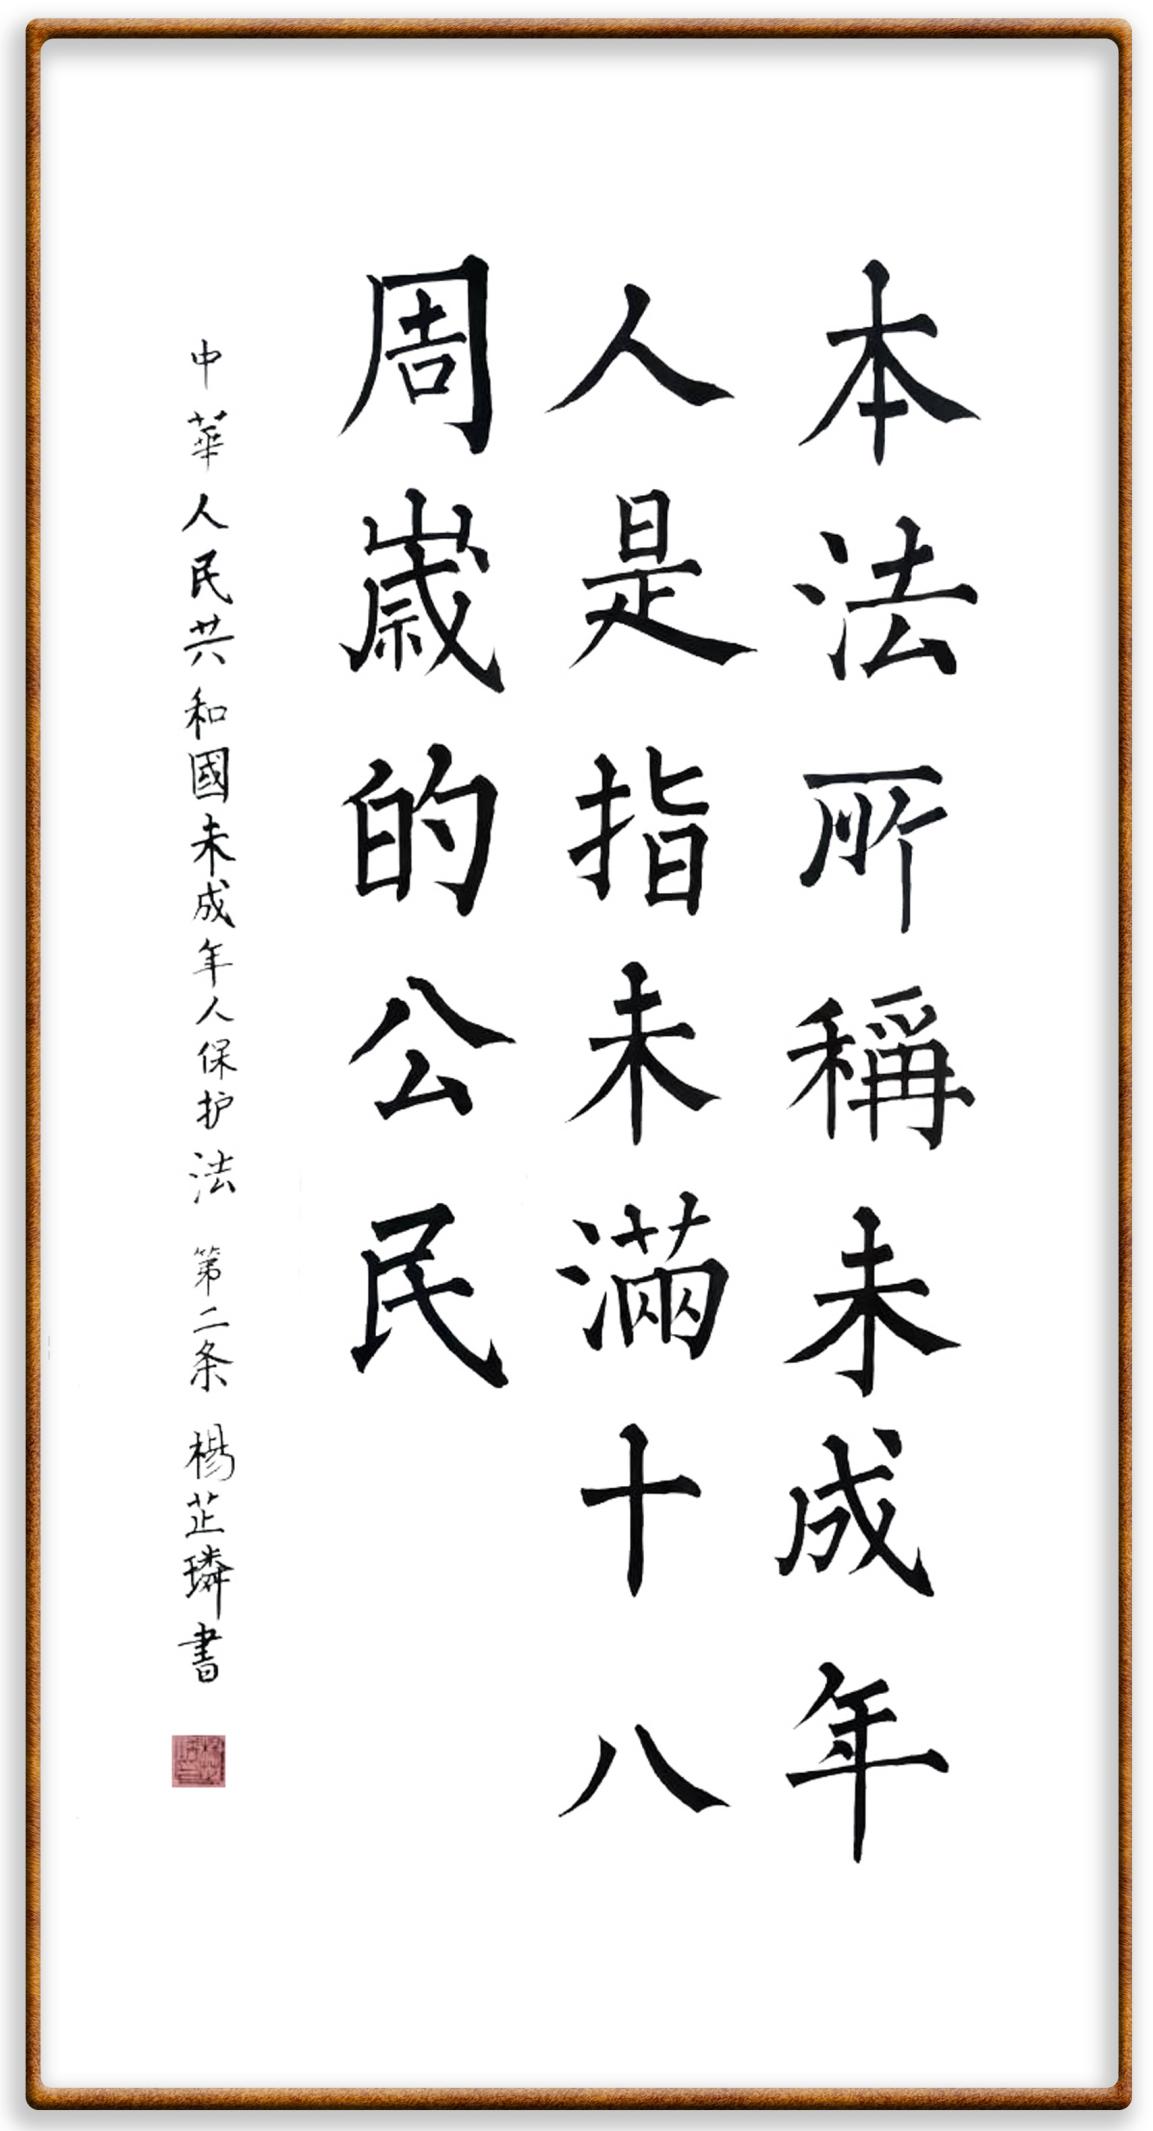 本法所稱未成年
人是指未滿十八
周歲的公民
中華人民共和國未成年人保护法 第二条 楊芷璘書